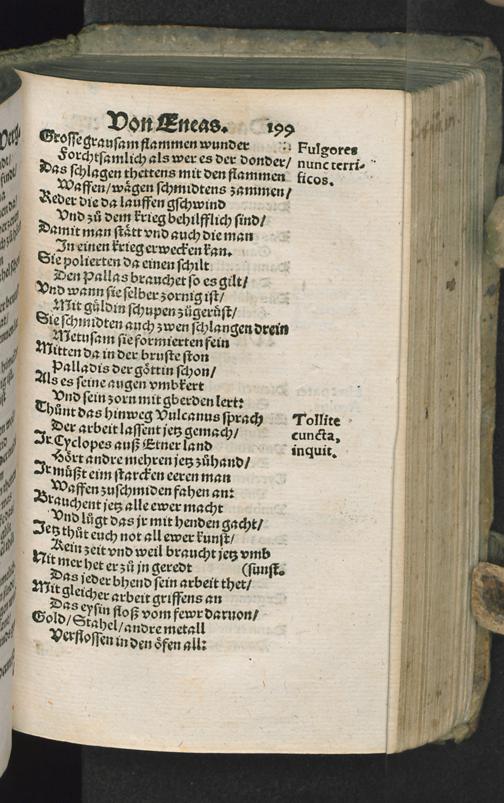 Von Æneas. 199
Grosse grausam flammen wunder
Forchtsamlich als wer es der donder/
Das schlagen thettens mit den flammen
Waffen/ wägen schmidtens zammen/
Reder die da lauffen gschwind
Vnd zů dem krieg behilfflich sind/
Damit man stätt vnd auch die man
In einen krieg erwecken kan.
Sie polierten da einen schilt
Den Pallas brauchet so es gilt/
Vnd wann sie selber zornig ist/
Mit güldin schupen zůgerüst/
Sie schmidten auch zwen schlangen drein
Metusam sie formierten fein
Mitten da in der bruste ston
Palladis der göttin schon/
Als es seine augen vmbkert
Vnd sein zorn mit gberden lert:
Thůnt das hinweg Vulcanus sprach
Der arbeit lassent jetz gemach/
Ir Cyclopes auß Etner land
Hört andre mehren jetz zůhand/
Ir můßt eim starcken eeren man
Waffen zuschmiden fahen an:
Brauchent jetz alle ewer macht
Vnd lůgt das jr mit henden gacht/
Jetz thůt euch not all ewer kunst/
Kein zeit vnd weil braucht jetz vmb
(sunst.
Nit mer het er zů in geredt
Das jeder bhend sein arbeit thet/
Mit gleicher arbeit griffens an
Das eysin floß vom fewr daruon/
Gold/ Stahel/ andre metall
Verflossen in den öfen all:
Fulgores
nunc terri-
ficos.
Tollite
cuncta,
inquit.